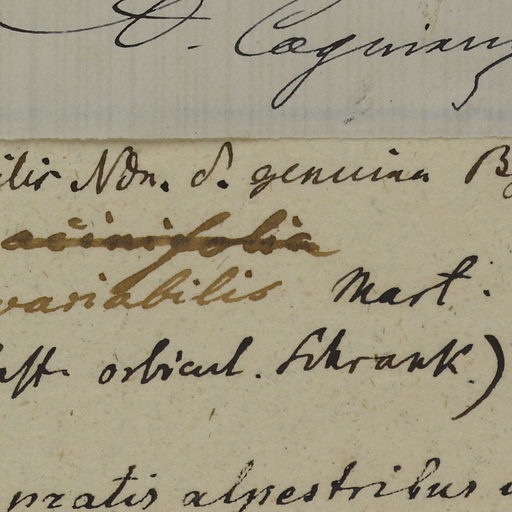 D. Cogniaux
ilis Ndn. δ. genuina B
acinifolia
variabilis Mart.
orbicul. Schrank.)
pratis alpestribus